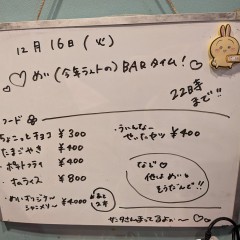 12月16日(火)
♡めい(今年ラストの)BARタイム!
22時まで!!
フード
ちょこっとチョコ ¥300
たまごやき ¥400
ポテトフライ ¥400
オムライス ¥800
めいオリジナルシャンメリー ¥4000
ういんなーせいたセツ ¥400
など♡
他はめいとそうだんだ!!
サンタさんまってるよぉ〜♡